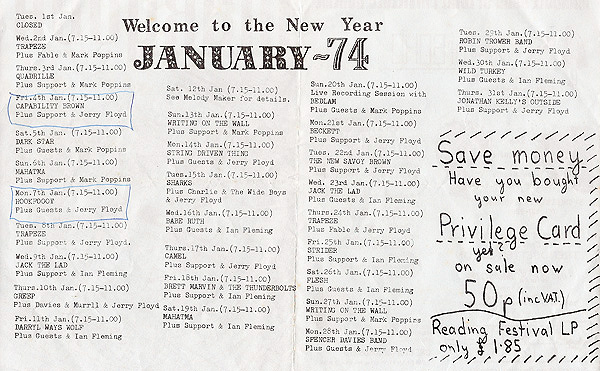 Welcome to the New Year
JANUARY-74
Tues. 1st Jan.
CLOSED
Wed.2nd Jan.(7.15-11.00)
TRAPEZE
Plus Fable & Mark Poppins
Thurs.3rd Jan.(7.15-11.00)
QUADRILLE
Plus Support & Mark Poppins
Fri.4th Jan.(7.15-11.00)
CAPABILITY BROWN
Plus Support & Jerry Floyd
Sat.5th Jan.(7.15-11.00)
DARK STAR
Plus Guests & Mark Poppins
Sun.6th Jan.(7.15-11.00)
MAHATMA
Plus Support & Mark Poppins
Mon.7th Jan.(7.15-11.00)
HOOKFOOT
Plus Guests & Jerry Floyd
Tues. 8th Jan.(7.15-11.00)
TRAPEZE
Plus Support & Jerry Floyd.
Wed.9th Jan.(7.15-11.00)
JACK THE LAD
Plus Support & Ian Fleming
Thurs.10th Jan.(7.15-11.00)
GREEP
Plus Davies & Murrll & Jerry Floyd
Fri.11th Jan.(7.15-11.00)
DARRYL WAYS WOLF
Plus Guests & Ian Fleming
Sat. 12th Jan (7.15-11.00)
See Melody Maker for details.
Sun.13th Jan.(7.15-11.00)
WRITING ON THE WALL
Plus Support & Mark Poppins
Mon.14th Jan.(7.15-11.00)
STRING DRIVEN THING
Plus Guests & Jerry Floyd
Tues.15th Jan.(7.15-11.00)
SHARKS
Plus Charlie & The Wide Boys
& Jerry Floyd
Wed.16th Jan.(7.15-11.00)
BABE RUTH
Plus Guests & Ian Fleming
Thurs.17th Jan.(7.15-11.00)
CAMEL
Plus Support & Jerry Floyd
Fri.18th Jan.(7.15-11.00)
BRETT MARVIN & THE THUNDERBOLTS
Plus Support & Ian Fleming
Sat.19th Jan.(7.15-11.00)
MAHATMA
Plus Support & Ian Fleming
Sun.20th Jan.(7.15-11.00)
Live Recording Session with
BEDLAM
Plus Guests & Mark Poppins
Mon.21st Jan.(7.15-11.00)
BECKETT
Plus Support & Jerry Floyd
Tues. 22nd Jan.(7.15-11.00)
THE NEW SAVOY BROWN
Plus Support & Jerry Floyd
Wed. 23rd Jan.(7.15-11.00)
JACK THE LAD
Plus Guests & Ian Fleming
Thurs.24th Jan.(7.15-11.00)
TRAPEZE
Plus Fable & Jerry Floyd
Fri.25th Jan.(7.15-11.00)
STRIDER
Plus Support & Ian Fleming
Sat.26th Jan.(7.15-11.00)
FLESH
Plus Guests & Ian Fleming
Sun.27th Jan.(7.15-11.00)
WRITING ON THE WALL
Plus Support & Mark Poppins
Mon.28th Jan.(7.15-11.00)
SPENCER DAVIES BAND
Plus Guests & Jerry Floyd
Tues. 29th Jan.(7.15-11.00)
ROBIN TROWER BAND
Plus Support & Jerry Floyd
Wed.30th Jan.(7.15-11.00)
WILD TURKEY
Plus Guests & Ian Fleming
Thurs. 31st Jan.(7.15-11.00)
JONATHAN KELLY'S OUTSIDE
Plus Support & Jerry Floyd
Save money
Have you bought
your new
Privilege Card
yet?
on sale now
50p (inc VAT.)
Reading Festival LP
only £1.85